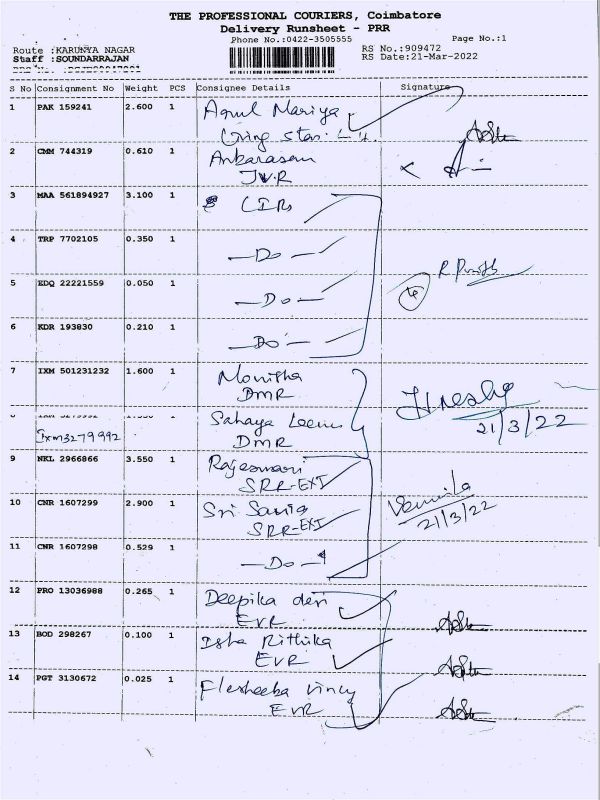 THE PROFESSIONAL COURIERS, Coimbatore
Delivery Runsheet - PRR
Phone No.:0422-3505555 Page No.:1
Route :KARUNYA NAGAR RS No.:909472
Staff :SOUNDARRAJAN RS Date:21-Mar-2022
S No Consignment No Weight PCS Consignee Details Signature
1 PAK 159241 2.600 1 Mariya
2 CMM 744319 0.610 1
3 MAA 561894927 3.100 1
4 TRP 7702105 0.350 1 —Do—
5 EDQ 22221559 0.050 1 —Do—
6 KDR 193830 0.210 1 —Do—
7 IXM 501231232 1.600 1 Monisha
DMR
21/3/22
Ixm3279992 Sahaya
DMR
9 NKL 2966866 3.550 1 Rajeswari
SRR-EXT
10 CNR 1607299 2.900 1 Sri
SRR-EXT
21/3/22
11 CNR 1607298 0.529 1 —Do—
12 PRO 13036988 0.265 1 Deepika devi
EVR
13 BOD 298267 0.100 1 Isha Rithika
EVR
14 PGT 3130672 0.025 1 Vincy
EVR